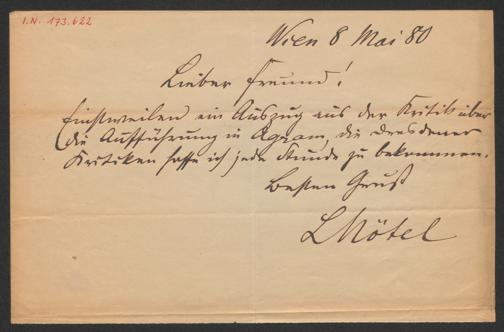 I.N. 173.622
Wien 8 Mai 80
Lieber Freund!
Einstweilen ein Auszug aus der Kritik über
die Aufführung in Agram, die Dresdener
Kritiken hoffe ich jede Stunde zu bekommen.
Besten Gruß
L Nötel